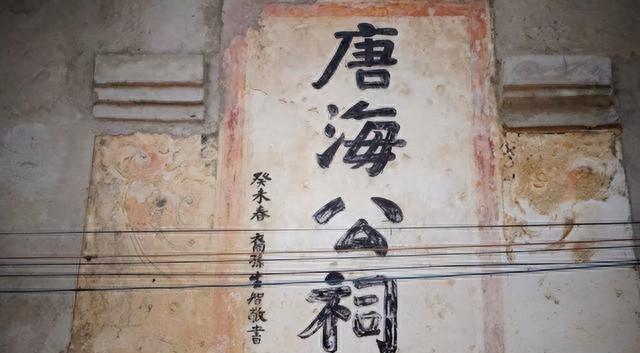 唐海公祠
癸未春 裔孫生智敬書